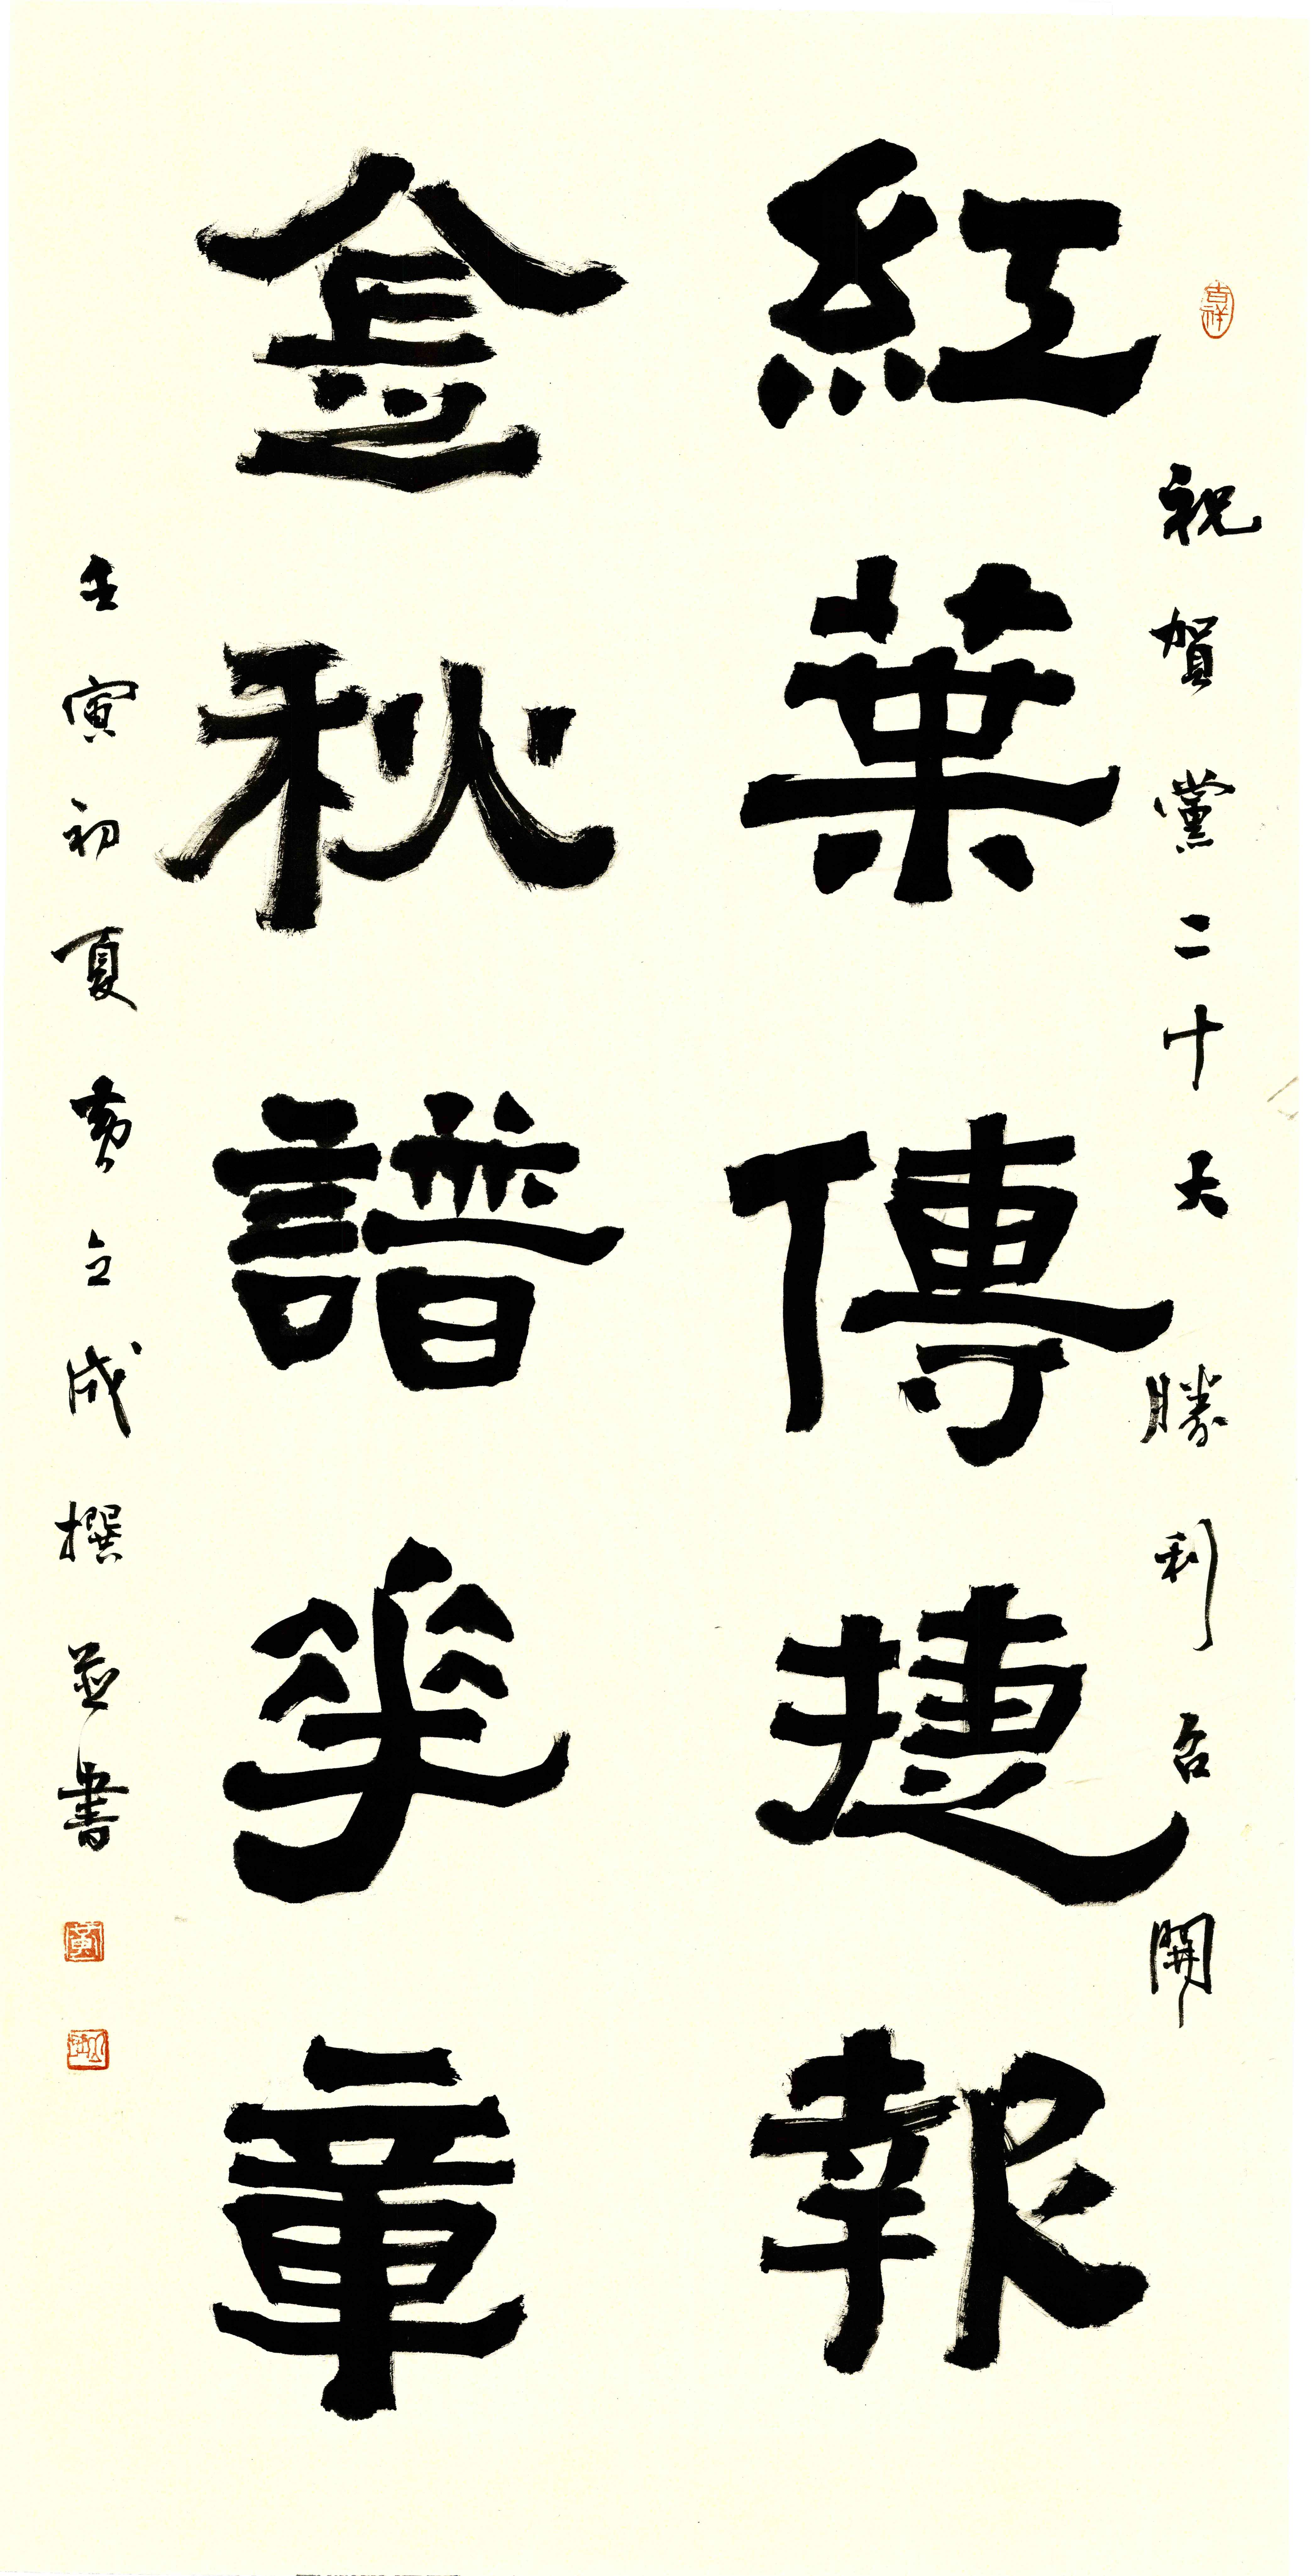 吉祥
祝賀黨二十大勝利召開
紅葉傳捷報
金秋譜華章
壬寅初夏黄立成撰並書